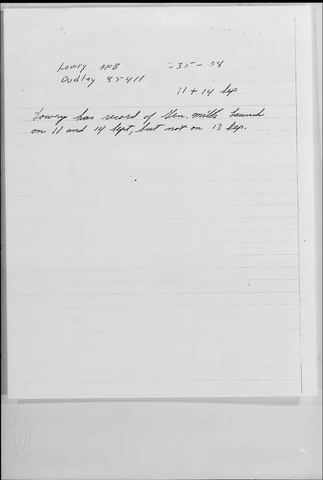 Lowry AFB -35-38
Dudley 85411
11 + 14 Sep
Lowry has record of Gen. mills Launch
on 11 and 14 Sept, but not on 13 Sep.